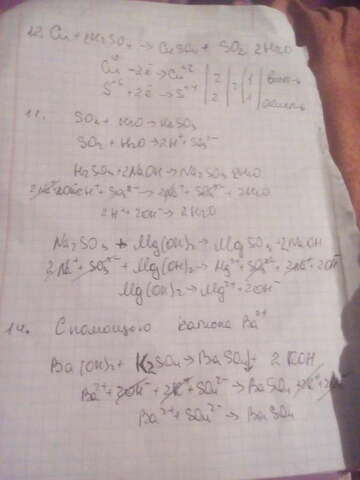 12. Cu + 2H2SO4 → CuSO4 + SO2 2H2O
Cu⁰ -2ē → Cu⁺² | 2 | 2 | 1 | восст-ь
S⁺⁶ +2ē → S⁺⁴ | 2 | 1 | окисл-ь
11. SO2 + H2O → H2SO3
SO2 + H2O → 2H⁺ + SO3²⁻
H2SO3 + 2NaOH → Na2SO3 2H2O
2H⁺ + 2OH⁻ → 2H2O
Na2SO3 + Mg(OH)2 → MgSO3 + 2NaOH
2Na⁺ + SO3²⁻ + Mg(OH)2 → Mg²⁺ + SO3²⁻ + 2Na⁺ + 2OH⁻
Mg(OH)2 → Mg²⁺ + 2OH⁻
14. С помощью катиона Ba²⁺
Ba(OH)2 + K2SO4 → BaSO4↓ + 2 KOH
Ba²⁺ + 2OH⁻ + 2K⁺ + SO4²⁻ → BaSO4 + 2K⁺ + 2OH⁻
Ba²⁺ + SO4²⁻ → BaSO4